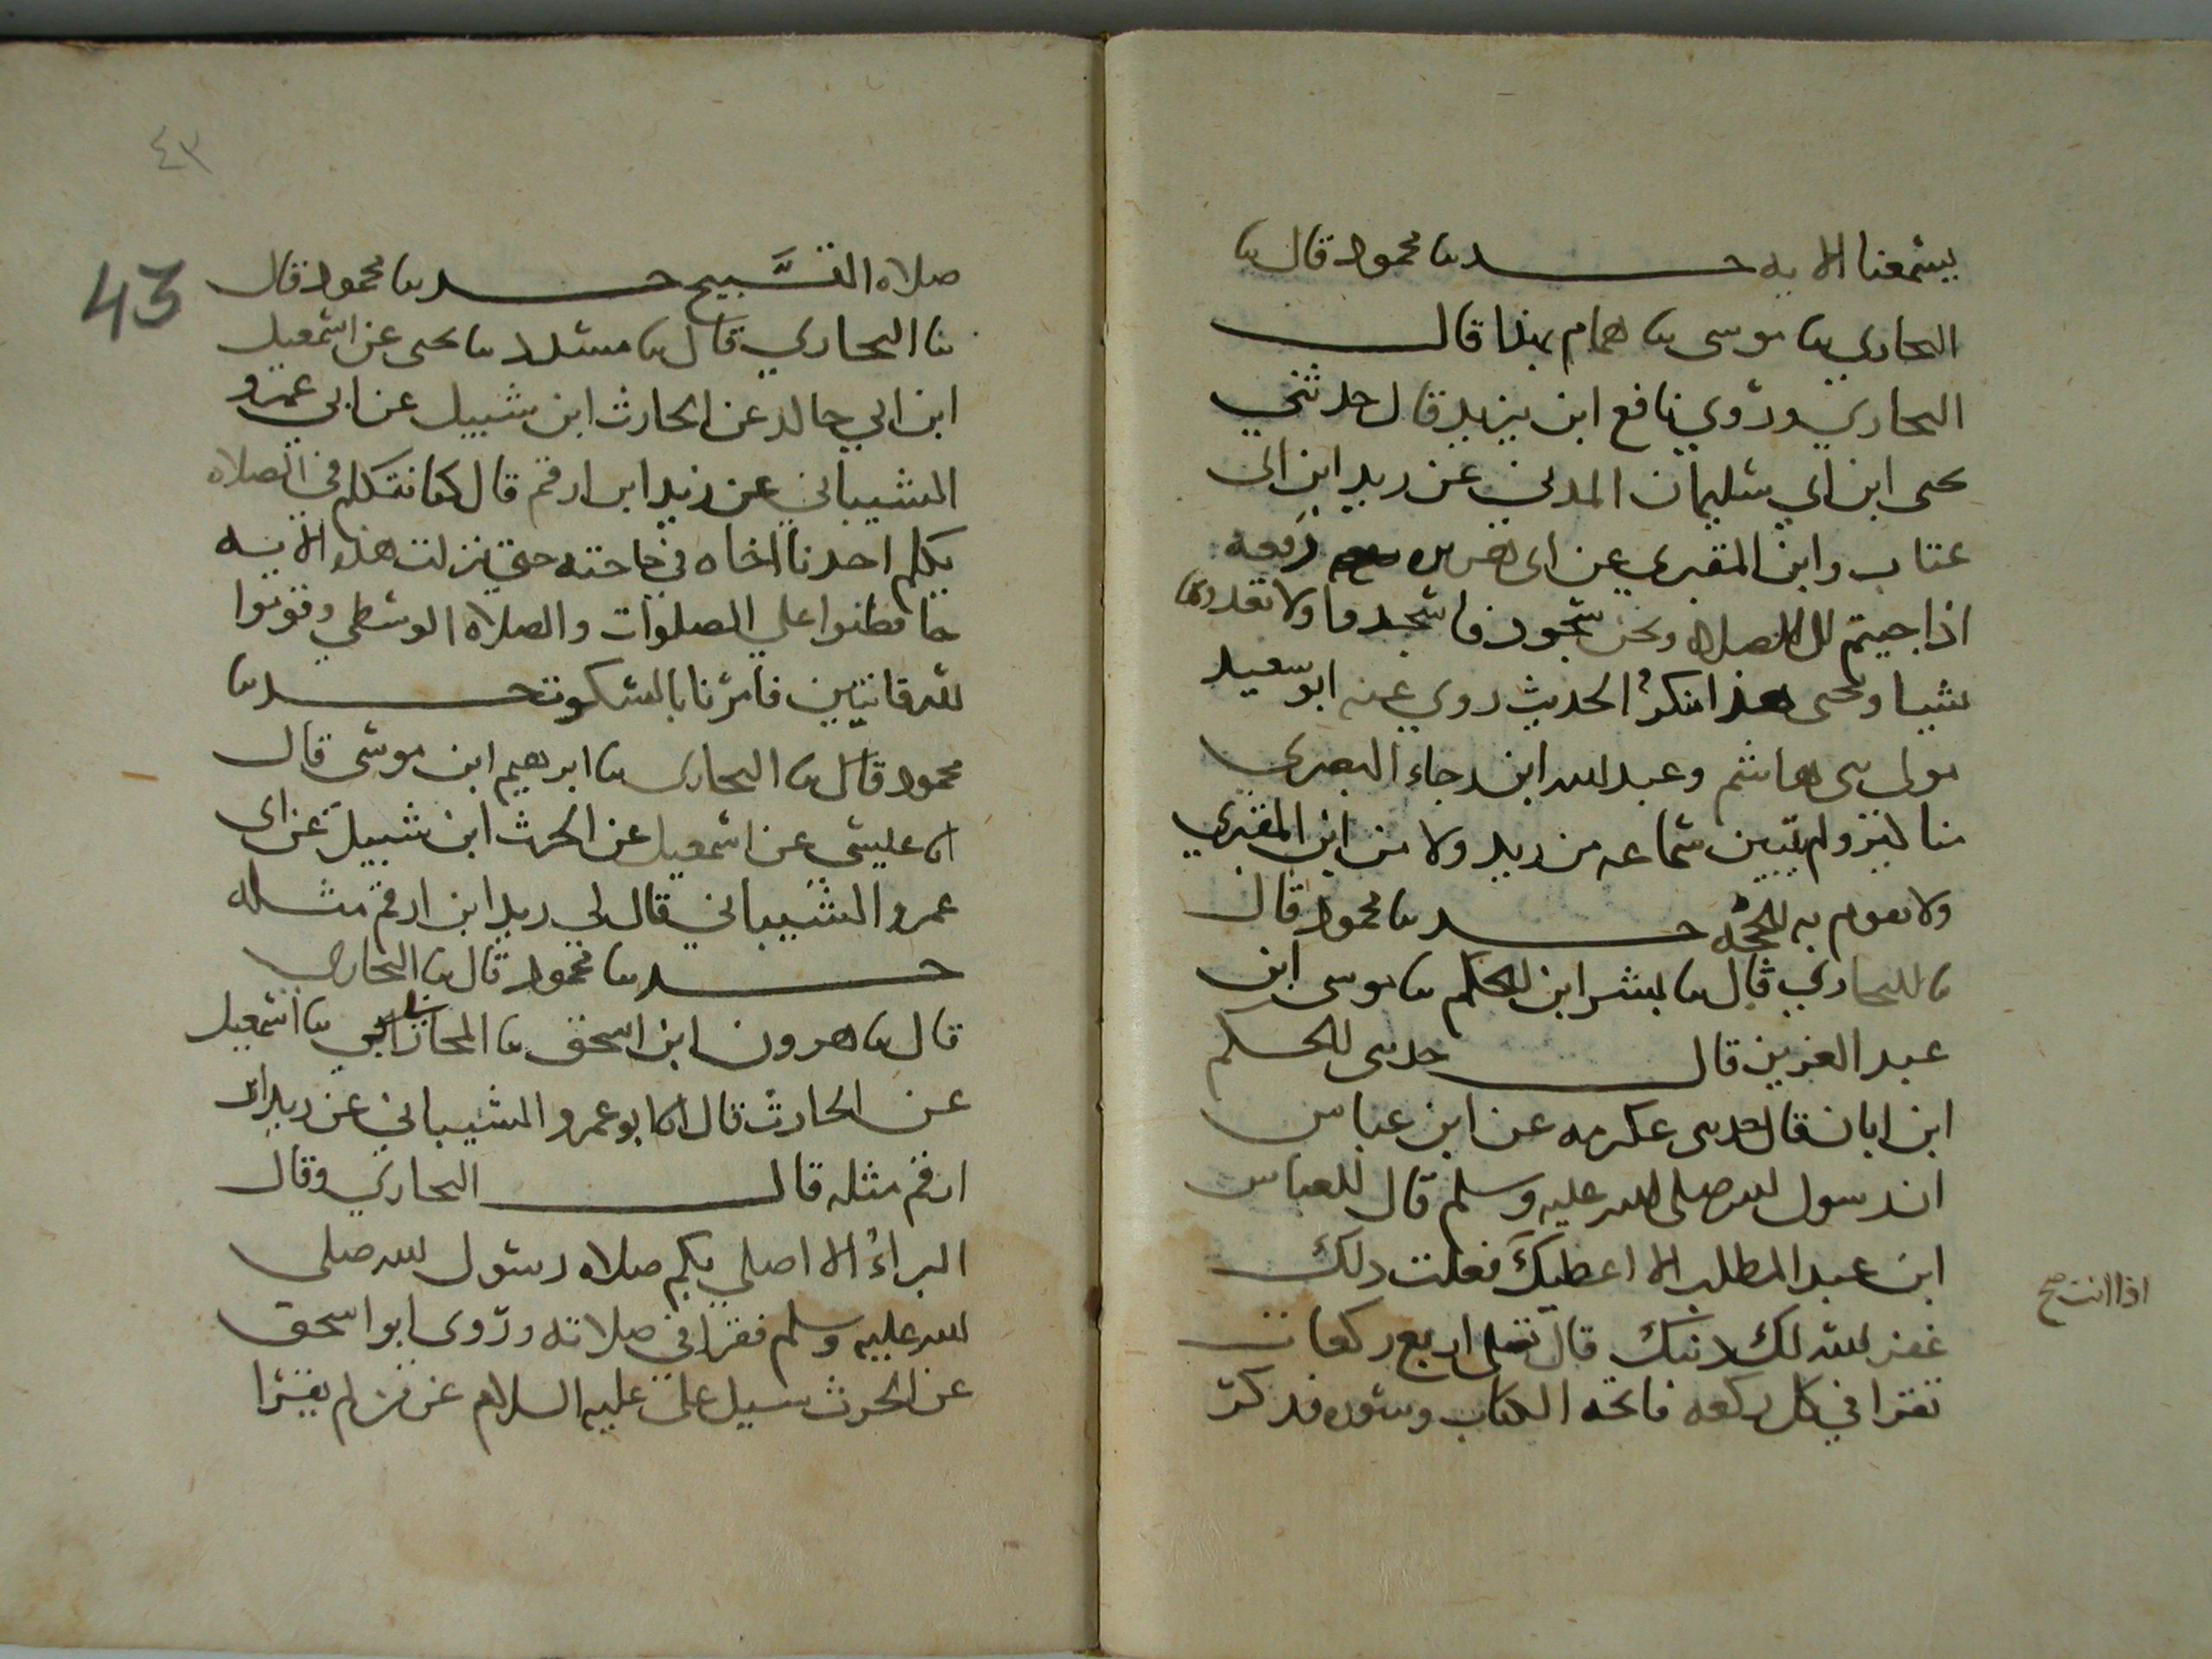 يسمعنا الايه حـــدثنا محمود قال ثنا
البخاري ثنا موسى ثنا همام بهذا قال
البخاري وروي نافع ابن يزيد قال حدثني
يحيى ابن ابي سليمان المدني عن زيد ابن ابي
عتاب وابن المقبري عن ابي هريره رفعه
اذا جيتم الى الصلاه ونحن سجود فاسجدوا ولا تعدوها
شيا ويحيى هذا منكر الحديث روي عنه ابو سعيد
مولى بني هاشم وعبد الله ابن رجاء البصري
مناكير ولم يتبين سماعه من زيد ولا من ابن المقبري
ولا تقوم به الحجه حـــدثنا محمود قال
ثنا البخاري قال ثنا بشر ابن الحكم ثنا موسى ابن
عبد العزيز قال حدثني الحكم
ابن ابان قال حدثني عكرمه عن ابن عباس
ان رسول الله صلى الله عليه وسلم قال للعباس
ابن عبد المطلب الا اعطيك فعلت ذلك
اذا انت صح
غفر الله لك ذنبك قال تصلي اربع ركعات
تقرا في كل ركعه فاتحه الكتاب وسوره فذكر
٤٣
43
صلاه التسَّبيح حـــدثنا محمود قال
ثنا البخاري قال ثنا مسدد ثنا يحيى عن اسمعيل
ابن ابي خالد عن الحارث ابن شبيل عن ابي عمرو
الشيباني عن زيد ابن ارقم قال كنا نتكلم في الصلاه
يكلم احدنا اخاه في حاجته حتى نزلت هذه الايه
حافظوا على الصلوات والصلاه الوسطى وقوموا
لله قانتين فامرنا بالسكوت حـــدثنا
محمود قال ثنا البخاري ثنا ابرهيم ابن موسى قال
انا عيسى عن اسمعيل عن الحرث ابن شبيل عن ابي
عمرو الشيباني قال لي زيد ابن ارقم مثله
حـــدثنا محمود قال ثنا البخاري
قال ثنا هرون ابن اسحق ثنا المحاربي ثنا اسمعيل
عن الحارث قال انا ابو عمرو الشيباني عن زيد ابن
ارقم مثله قال البخاري وقال
البراءُ الا اصلي بكم صلاه رسول الله صلى
الله عليه وسلم فقرا في صلاته وروى ابو اسحق
عن الحرث سيل علي عليه السلام عن من لم يقرا